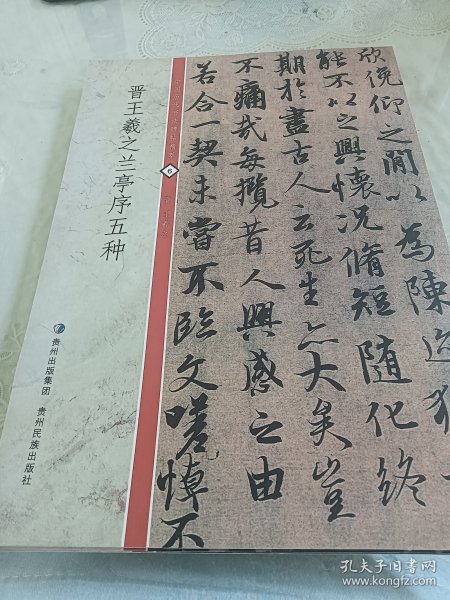 晋王羲之兰亭序五种
贵州出版集团
贵州民族出版社
6
欣俛仰之間以為陳迹猶
能不以之興懷況脩短隨化終
期於盡古人云死生亦大矣豈
不痛哉每攬昔人興感之由
若合一契未嘗不臨文嗟悼不
孔夫子旧书网
www.kongfz.com